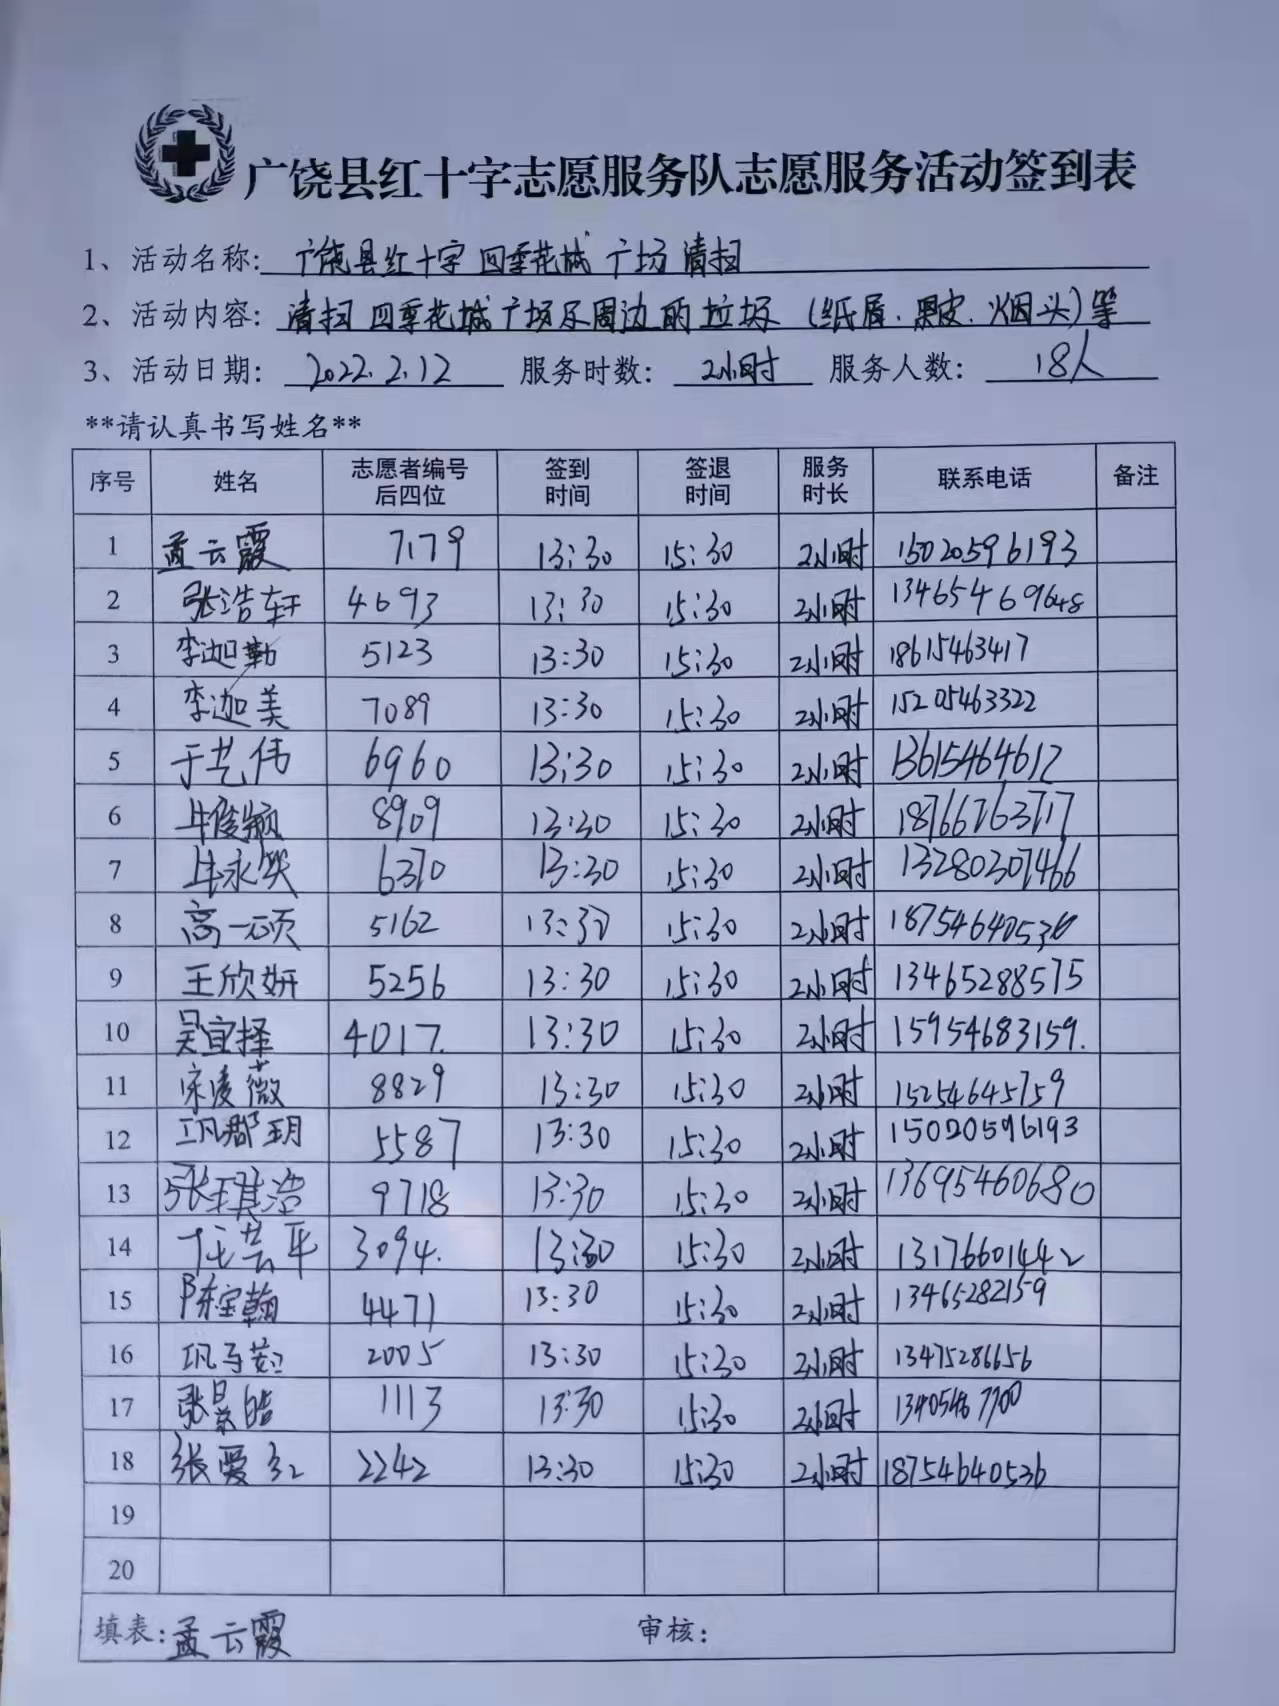 广饶县红十字志愿服务队志愿服务活动签到表
1、活动名称: 广饶县红十字四季花城广场清扫
2、活动内容: 清扫四季花城广场及周边的垃圾(纸屑.果皮.烟头)等
3、活动日期: 2022.2.12 服务时数: 2小时 服务人数: 18人
**请认真书写姓名**
序号 姓名 志愿者编号后四位 签到时间 签退时间 服务时长 联系电话 备注
1 孟云霞 7179 13:30 15:30 2小时 15020596193
2 张浩轩 4693 13:30 15:30 2小时
3 李迦勤 5123 13:30 15:30 2小时 18615463417
4 李迦美 7089 13:30 15:30 2小时 15205463322
5 于艺伟 6960 13:30 15:30 2小时 13615464612
6 牛俊颖 8909 13:30 15:30 2小时 18766763717
7 牛永笑 6370 13:30 15:30 2小时 13280307466
8 高一硕 5162 13:30 15:30 2小时 18754640536
9 王欣妍 5256 13:30 15:30 2小时 13465288575
10 吴宜择 4017. 13:30 15:30 2小时 15954683159.
11 宋凌薇 8829 13:30 15:30 2小时 15254645759
12 5587 13:30 15:30 2小时 15020596193
13 张琪浩 9718 13:30 15:30 2小时 13695460680
14 任芸平 3094. 13:30 15:30 2小时 13176601442
15 陈宝翰 4471 13:30 15:30 2小时 13465282159
16 2005 13:30 15:30 2小时 13475286656
17 张景皓 1113 13:30 15:30 2小时
18 张爱红 2242 13:30 15:30 2小时 18754640536
19
20
填表: 孟云霞 审核: